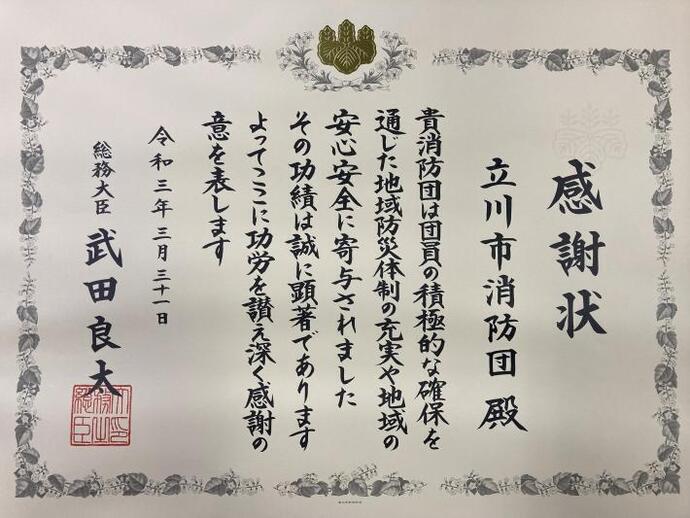 感謝状
立川市消防団 殿
貴消防団は団員の積極的な確保を
通じた地域防災体制の充実や地域の
安心安全に寄与されました
その功績は誠に顕著であります
よってここに功労を讃え深く感謝の
意を表します
令和三年三月三十一日
総務大臣 武田良太